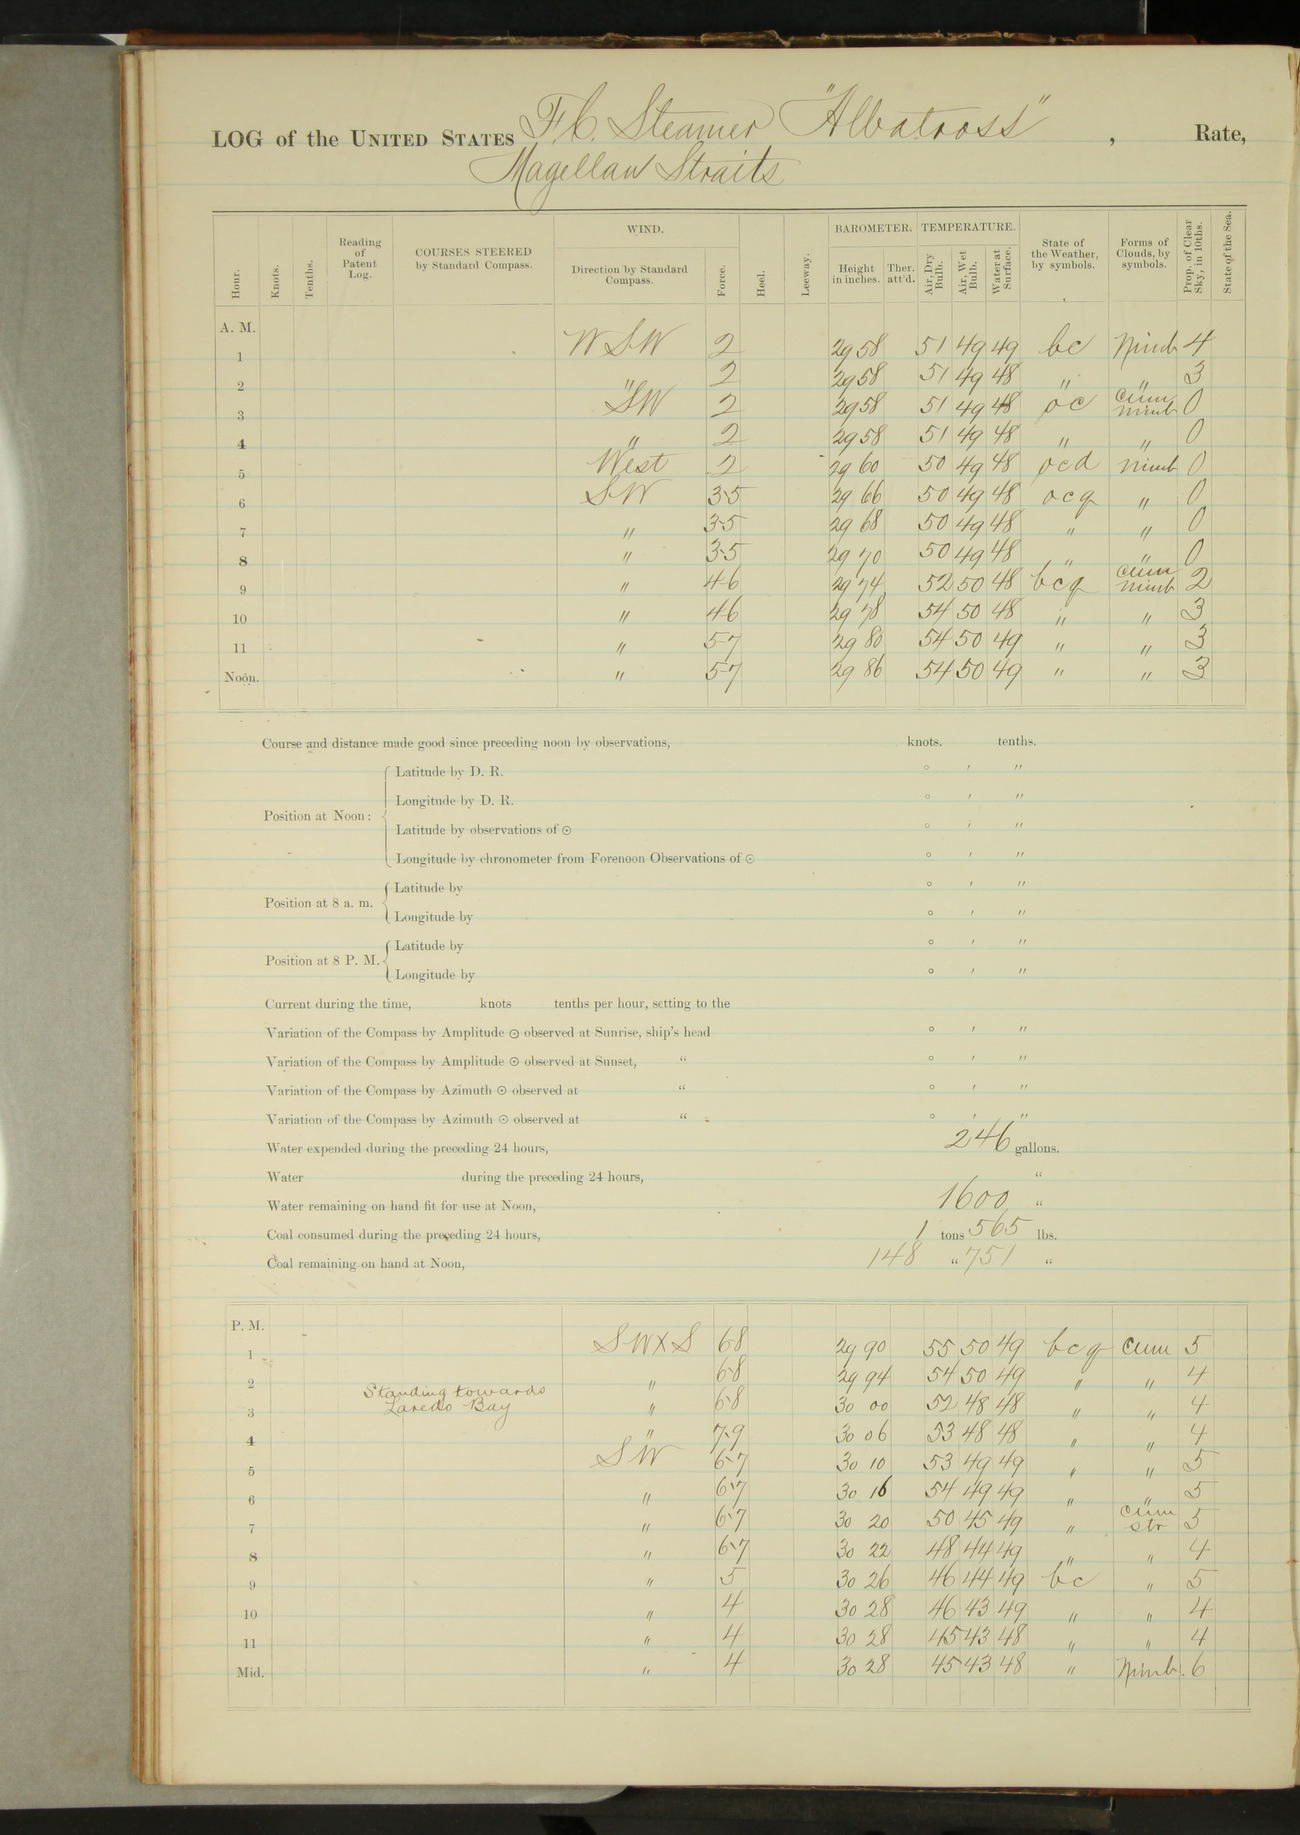 LOG of the UNITED STATES F.C. Steamer "Albatross", Rate,
Magellan Straits
Hour. Knots. Tenths. Reading of Patent Log. COURSES STEERED by Standard Compass. WIND. Direction by Standard Compass. Force. Heel. Leeway. BAROMETER. Height in inches. Ther. att'd. TEMPERATURE. Air, Dry Bulb. Air, Wet Bulb. Water at Surface. State of the Weather, by symbols. Forms of Clouds, by symbols. Prop. of Clear Sky, in 10ths. State of the Sea.
A. M.
1 WSW 2 29 58 51 49 49 bc Nimb 4
2 " 2 29 58 51 49 48 " " 3
3 SW 2 29 58 51 49 48 oc cum nimb 0
4 " 2 29 58 51 49 48 " " 0
5 West 2 29 60 50 49 48 ocd nimb 0
6 SW 3-5 29 66 50 49 48 ocq " 0
7 " 3-5 29 68 50 49 48 " " 0
8 " 3-5 29 70 50 49 48 " " 0
9 " 4-6 29 74 52 50 48 bcq cum nimb 2
10 " 4-6 29 78 54 50 48 " " 3
11 " 5-7 29 80 54 50 49 " " 3
Noon. " 5-7 29 86 54 50 49 " " 3
Course and distance made good since preceding noon by observations, knots. tenths.
Position at Noon:
Latitude by D. R. ° ′ ″
Longitude by D. R. ° ′ ″
Latitude by observations of ⊙ ° ′ ″
Longitude by chronometer from Forenoon Observations of ⊙ ° ′ ″
Position at 8 a. m.
Latitude by ° ′ ″
Longitude by ° ′ ″
Position at 8 P. M.
Latitude by ° ′ ″
Longitude by ° ′ ″
Current during the time, knots tenths per hour, setting to the
Variation of the Compass by Amplitude ⊙ observed at Sunrise, ship's head ° ′ ″
Variation of the Compass by Amplitude ⊙ observed at Sunset, " ° ′ ″
Variation of the Compass by Azimuth ⊙ observed at " ° ′ ″
Variation of the Compass by Azimuth ⊙ observed at " ° ′ ″
Water expended during the preceding 24 hours, 246 gallons.
Water during the preceding 24 hours, "
Water remaining on hand fit for use at Noon, 1600 "
Coal consumed during the preceding 24 hours, 1 tons 565 lbs.
Coal remaining on hand at Noon, 148 " 751 "
P. M.
1 SWXS 6-8 29 90 55 50 49 bcq Cum 5
2 " 6-8 29 94 54 50 49 " " 4
Standing towards
3 Laredo Bay " 6-8 30 00 52 48 48 " " 4
4 " 7-9 30 06 53 48 48 " " 4
5 SW 6-7 30 10 53 49 49 " " 5
6 " 6-7 30 16 54 49 49 " " 5
7 " 6-7 30 20 50 45 49 " cum str 5
8 " 6-7 30 22 48 44 49 " " 4
9 " 5 30 26 46 44 49 bc " 5
10 " 4 30 28 46 43 49 " " 4
11 " 4 30 28 45 43 48 " " 4
Mid. " 4 30 28 45 43 48 " Nimb. 6